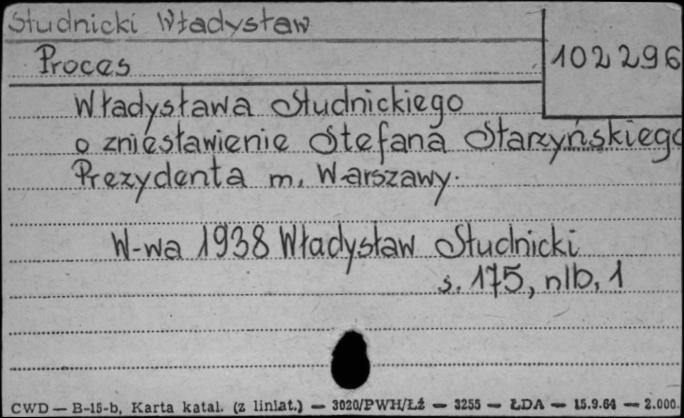 Studnicki Władysław
Proces
102296
Władysława Studnickiego
o zniesławienie Stefana Starzyńskiego
Prezydenta m. Warszawy.
W-wa 1938 Władysław Studnicki
s. 175, nlb, 1
CWD — B-15-b, Karta katal. (z liniat.) — 3020/PWH/Łź — 3255 — ŁDA — 15.9.64 — 2.000.